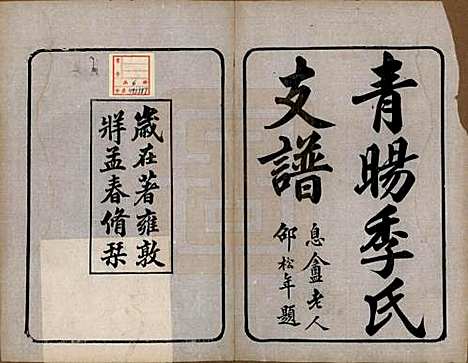 青暘季氏
支譜
息盦老人
邵松年題
歲在著雍敦
牂孟春脩栞